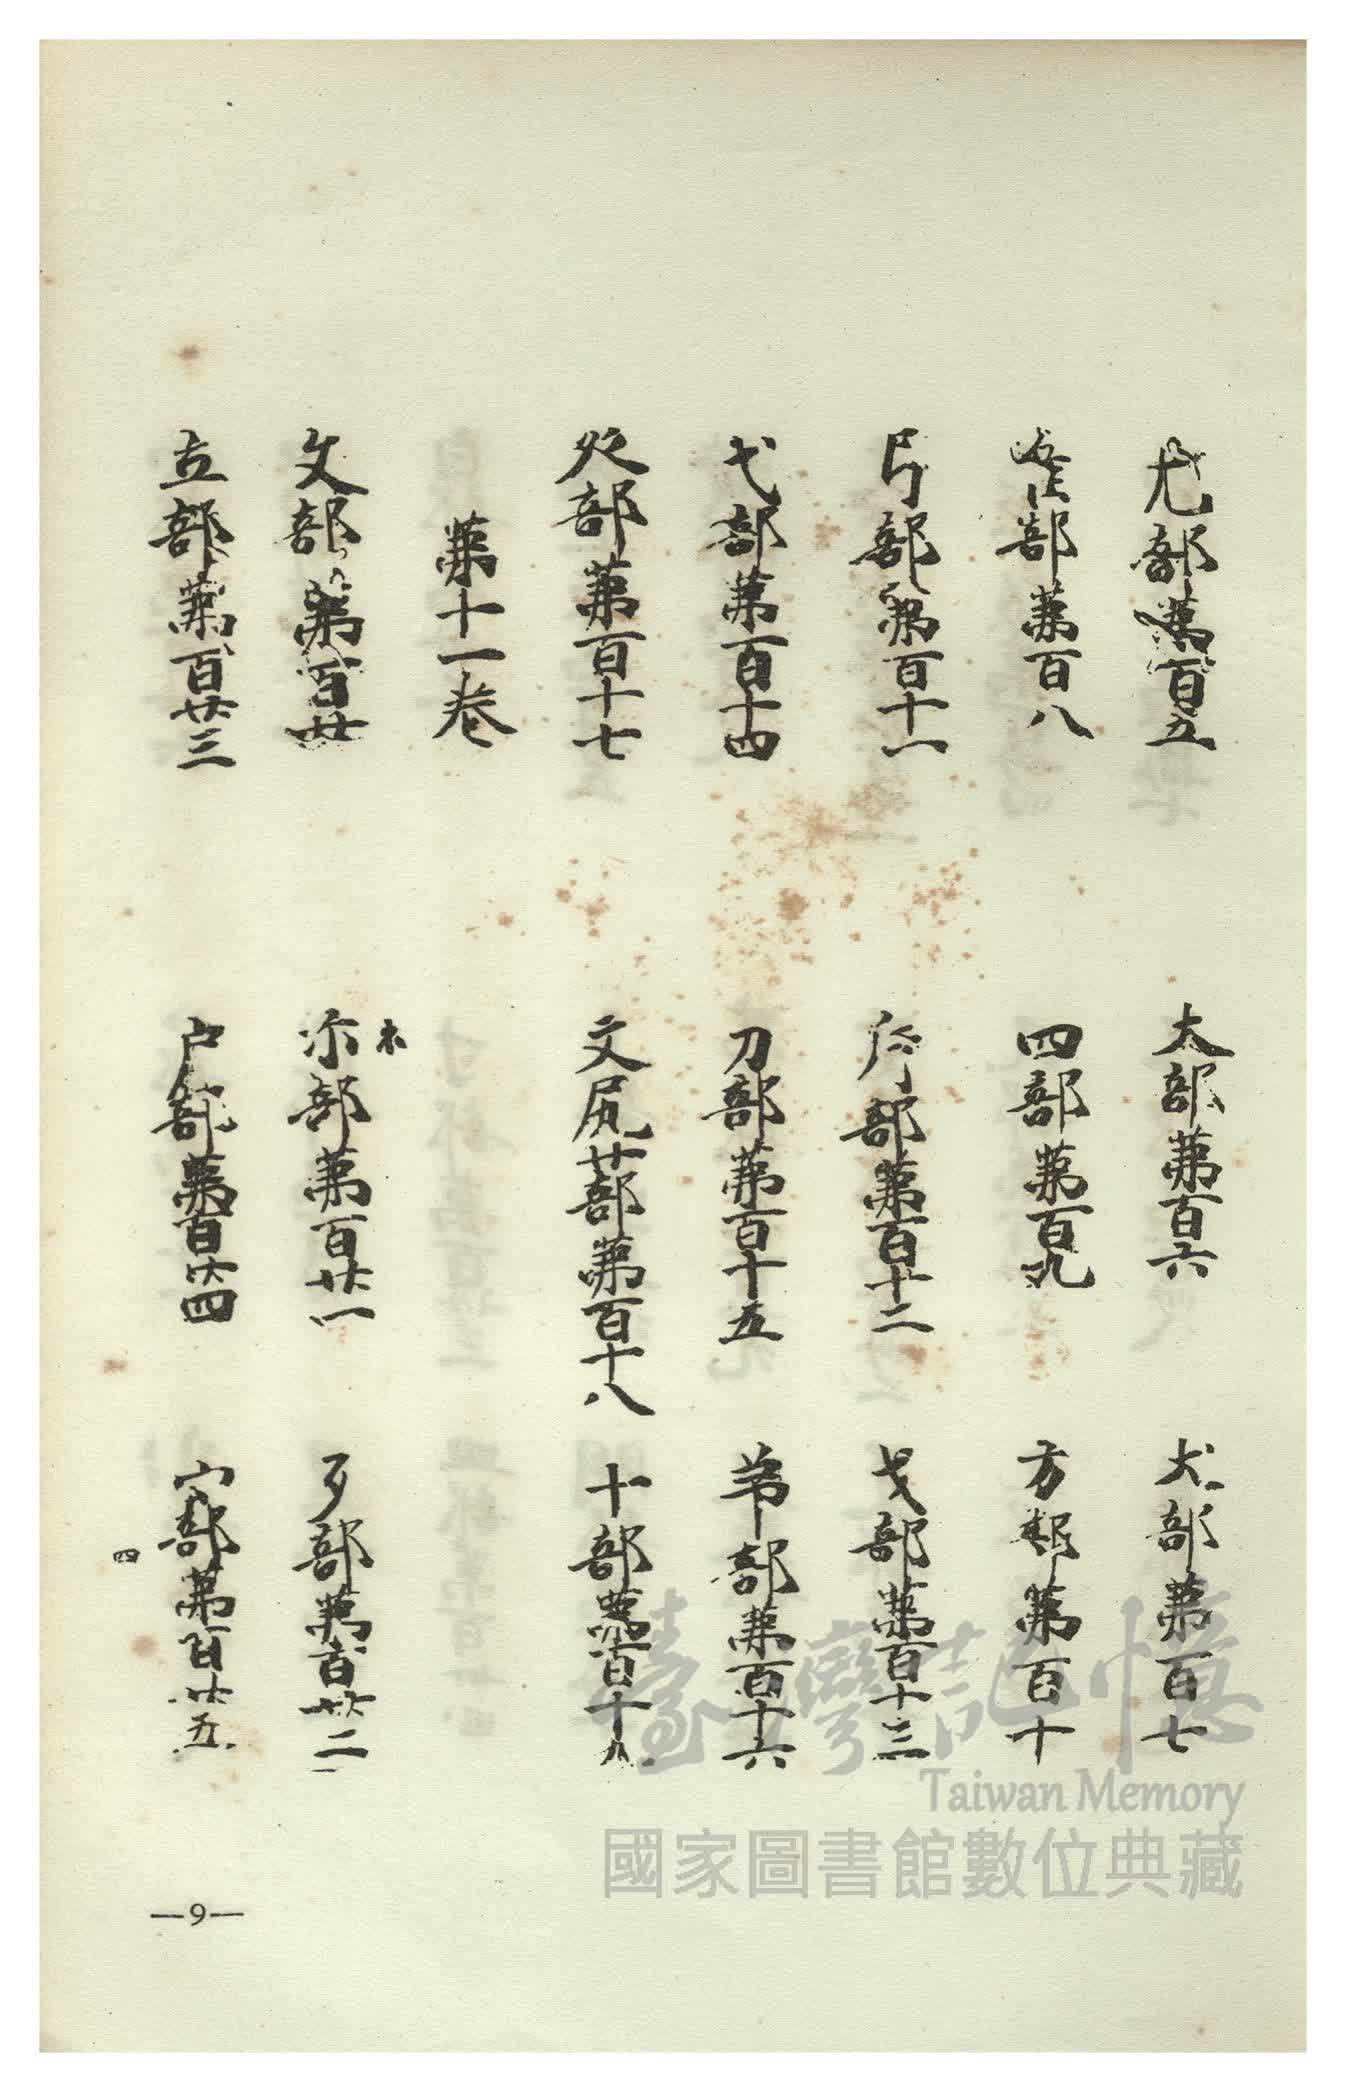 尤部第百五　大部第百六　犬部第百七
部第百八　四部第百九　方部第百十
弓部第百十一　部第百十二　戈部第百十三
弋部第百十四　刀部第百十五　部第百十六
部第百十七　文尻廿部第百十八　十部第百十八
第十一卷
文部第百廿　尓部第百廿一　歹部第百廿二
木
立部第百廿三　户部第百廿四　穴部第百廿五
四
—9—
臺灣記憶
Taiwan Memory
國家圖書館數位典藏